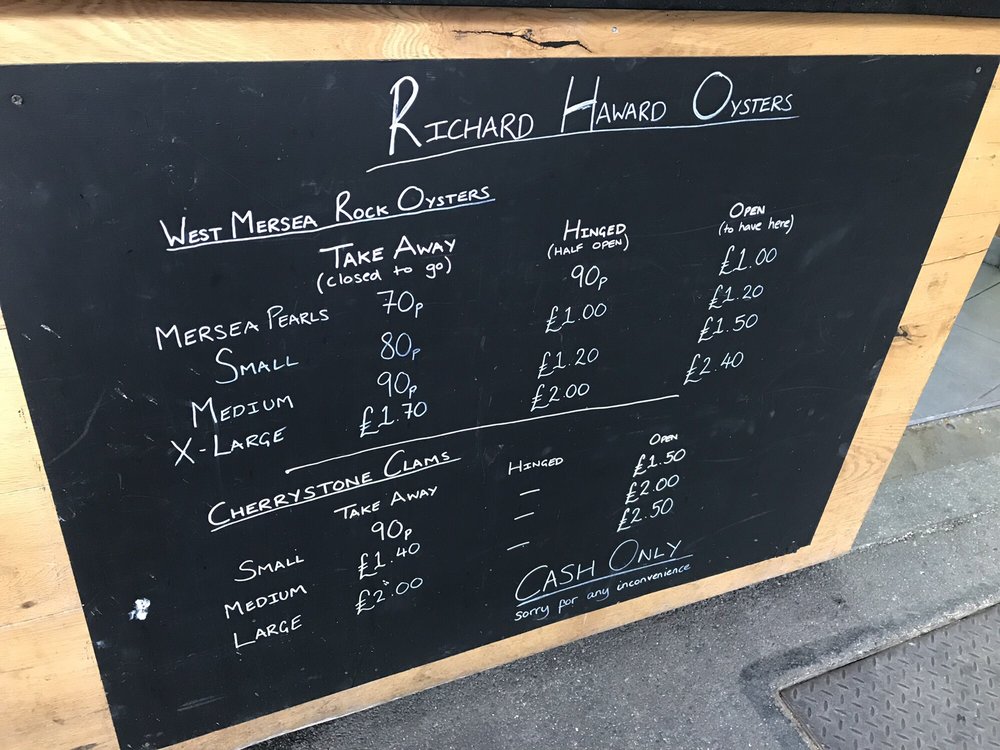 RICHARD HAWARD OYSTERS
WEST MERSEA ROCK OYSTERS
TAKE AWAY HINGED OPEN
(closed to go) (HALF OPEN) (to have here)
MERSEA PEARLS 70p 90p £1.00
SMALL 80p £1.00 £1.20
MEDIUM 90p £1.20 £1.50
X-LARGE £1.70 £2.00 £2.40
CHERRYSTONE CLAMS
TAKE AWAY HINGED OPEN
SMALL 90p — £1.50
MEDIUM £1.40 — £2.00
LARGE £2.00 — £2.50
CASH ONLY
sorry for any inconvenience